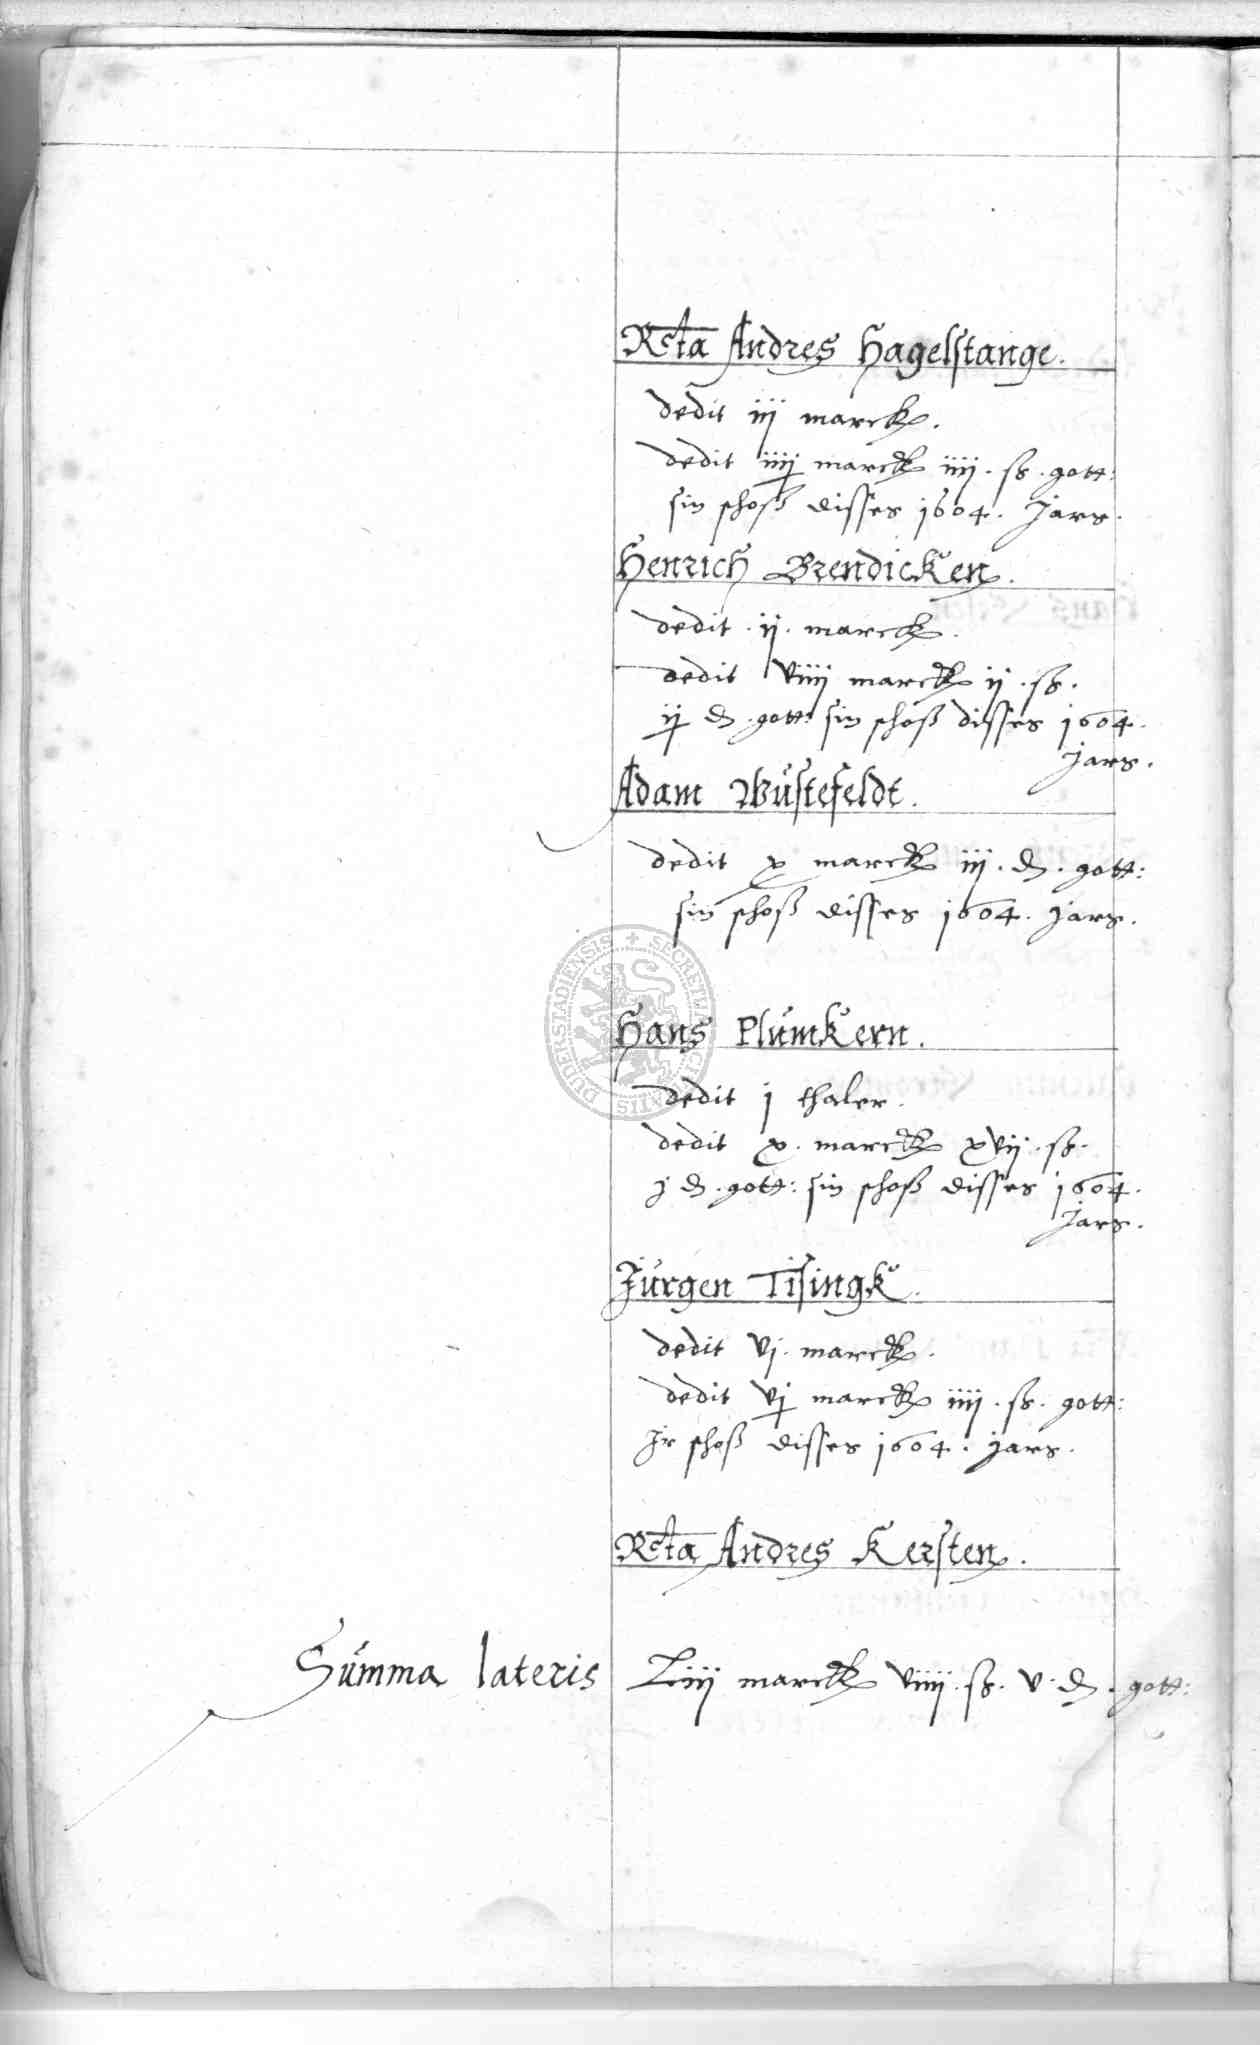 Rcta Andres Hagelstange.
dedit iij marck.
dedit iiij marck iiij. ß. gott:
sin schoß disses 1604. Jars.
Henrich Brendicken.
dedit. ij. marck.
dedit viiij marck ij. ß.
ij d. gott: sin schoß disses 1604.
Jars.
Adam Wüstefeldt.
dedit x marck iij. d. gott:
sin schoß disses 1604. Jars.
SECRETUM CIVITATIS DUDERSTADIENSIS
Hans Plümkern.
dedit j thaler.
dedit x. marck xvij. ß.
j d. gott: sin schoß disses 1604.
Jars.
Jürgen Tisingk.
dedit vj. marck.
dedit vj marck iiij. ß. gott:
Jr schoß disses 1604. jars.
Rcta Andres Kersten.
Summa lateris Liij marck viiij. ß. v. d. gott: